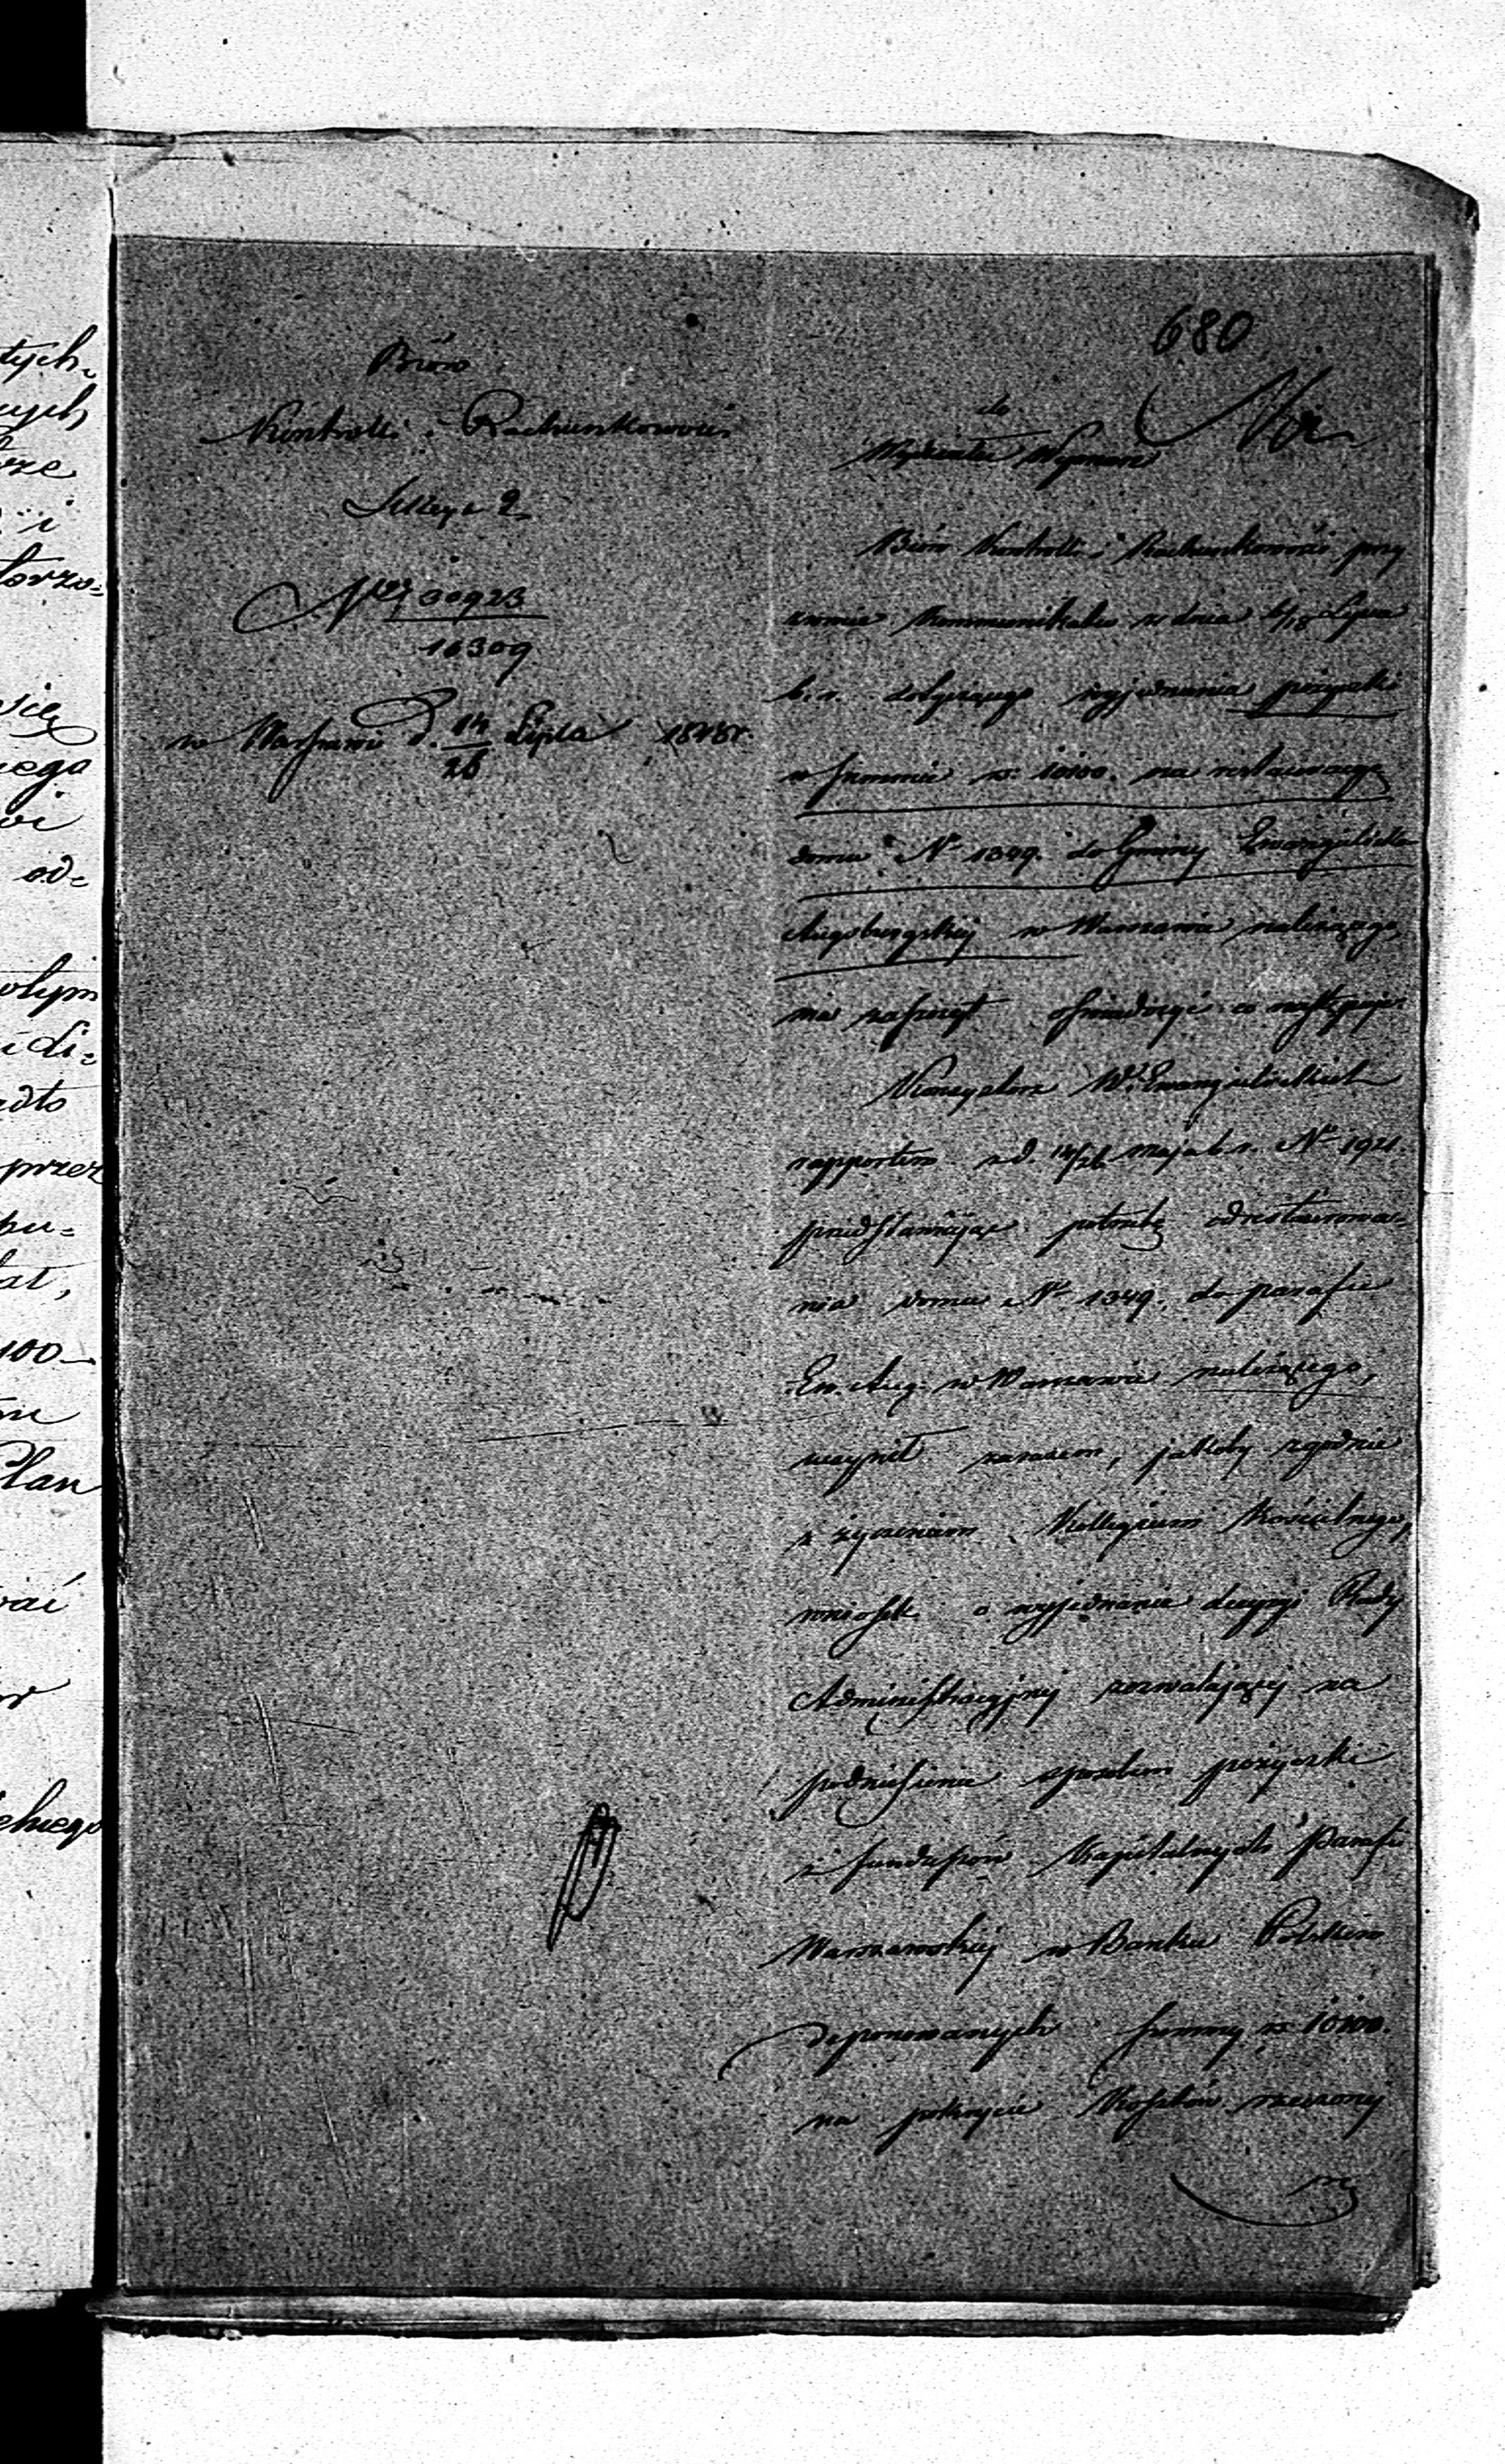 680
Bióro
Kontrolli i Rachunkowości
Sekcya 2.
30923
16309
w Warszawie d. 14/26 Lipca 1848 r.
do
Wydziału Wyznań
Bióro Kontrolli i Rachunkowości przy
zwrocie Kommunikatu z dnia 6/18 Lipca
b. r. dotyczącego wyjednania pożyczki
w summie rs: 10100. na restauracyą
domu Nr 1349. do Gminy Ewangelicko
Augsburgskiej w Warszawie należącego,
ma zaszczyt oświadczyć co następuje:
Konsystorz W. Ewangielickich
rapportem z d. 14/26 maja b. r. Nr 1921.
przedstawiając potrzebę odrestaurowa-
nia domu Nr 1349. do parafii
Ew. Aug. w Warszawie należącego,
uczynił zarazem, jakoby zgodnie
z życzeniem Kollegium Kościelnego,
wniosek o wyjednanie decyzyi Rady
Administracyjnej zezwalającej na
podniesienie sposobem pożyczki
z funduszów Kapitalnych Parafii
Warszawskiej w Banku Polskim
deponowanych summy rs 10100.
na pokrycie Kosztów rzeczonej
tych
i
przez
100
Plan